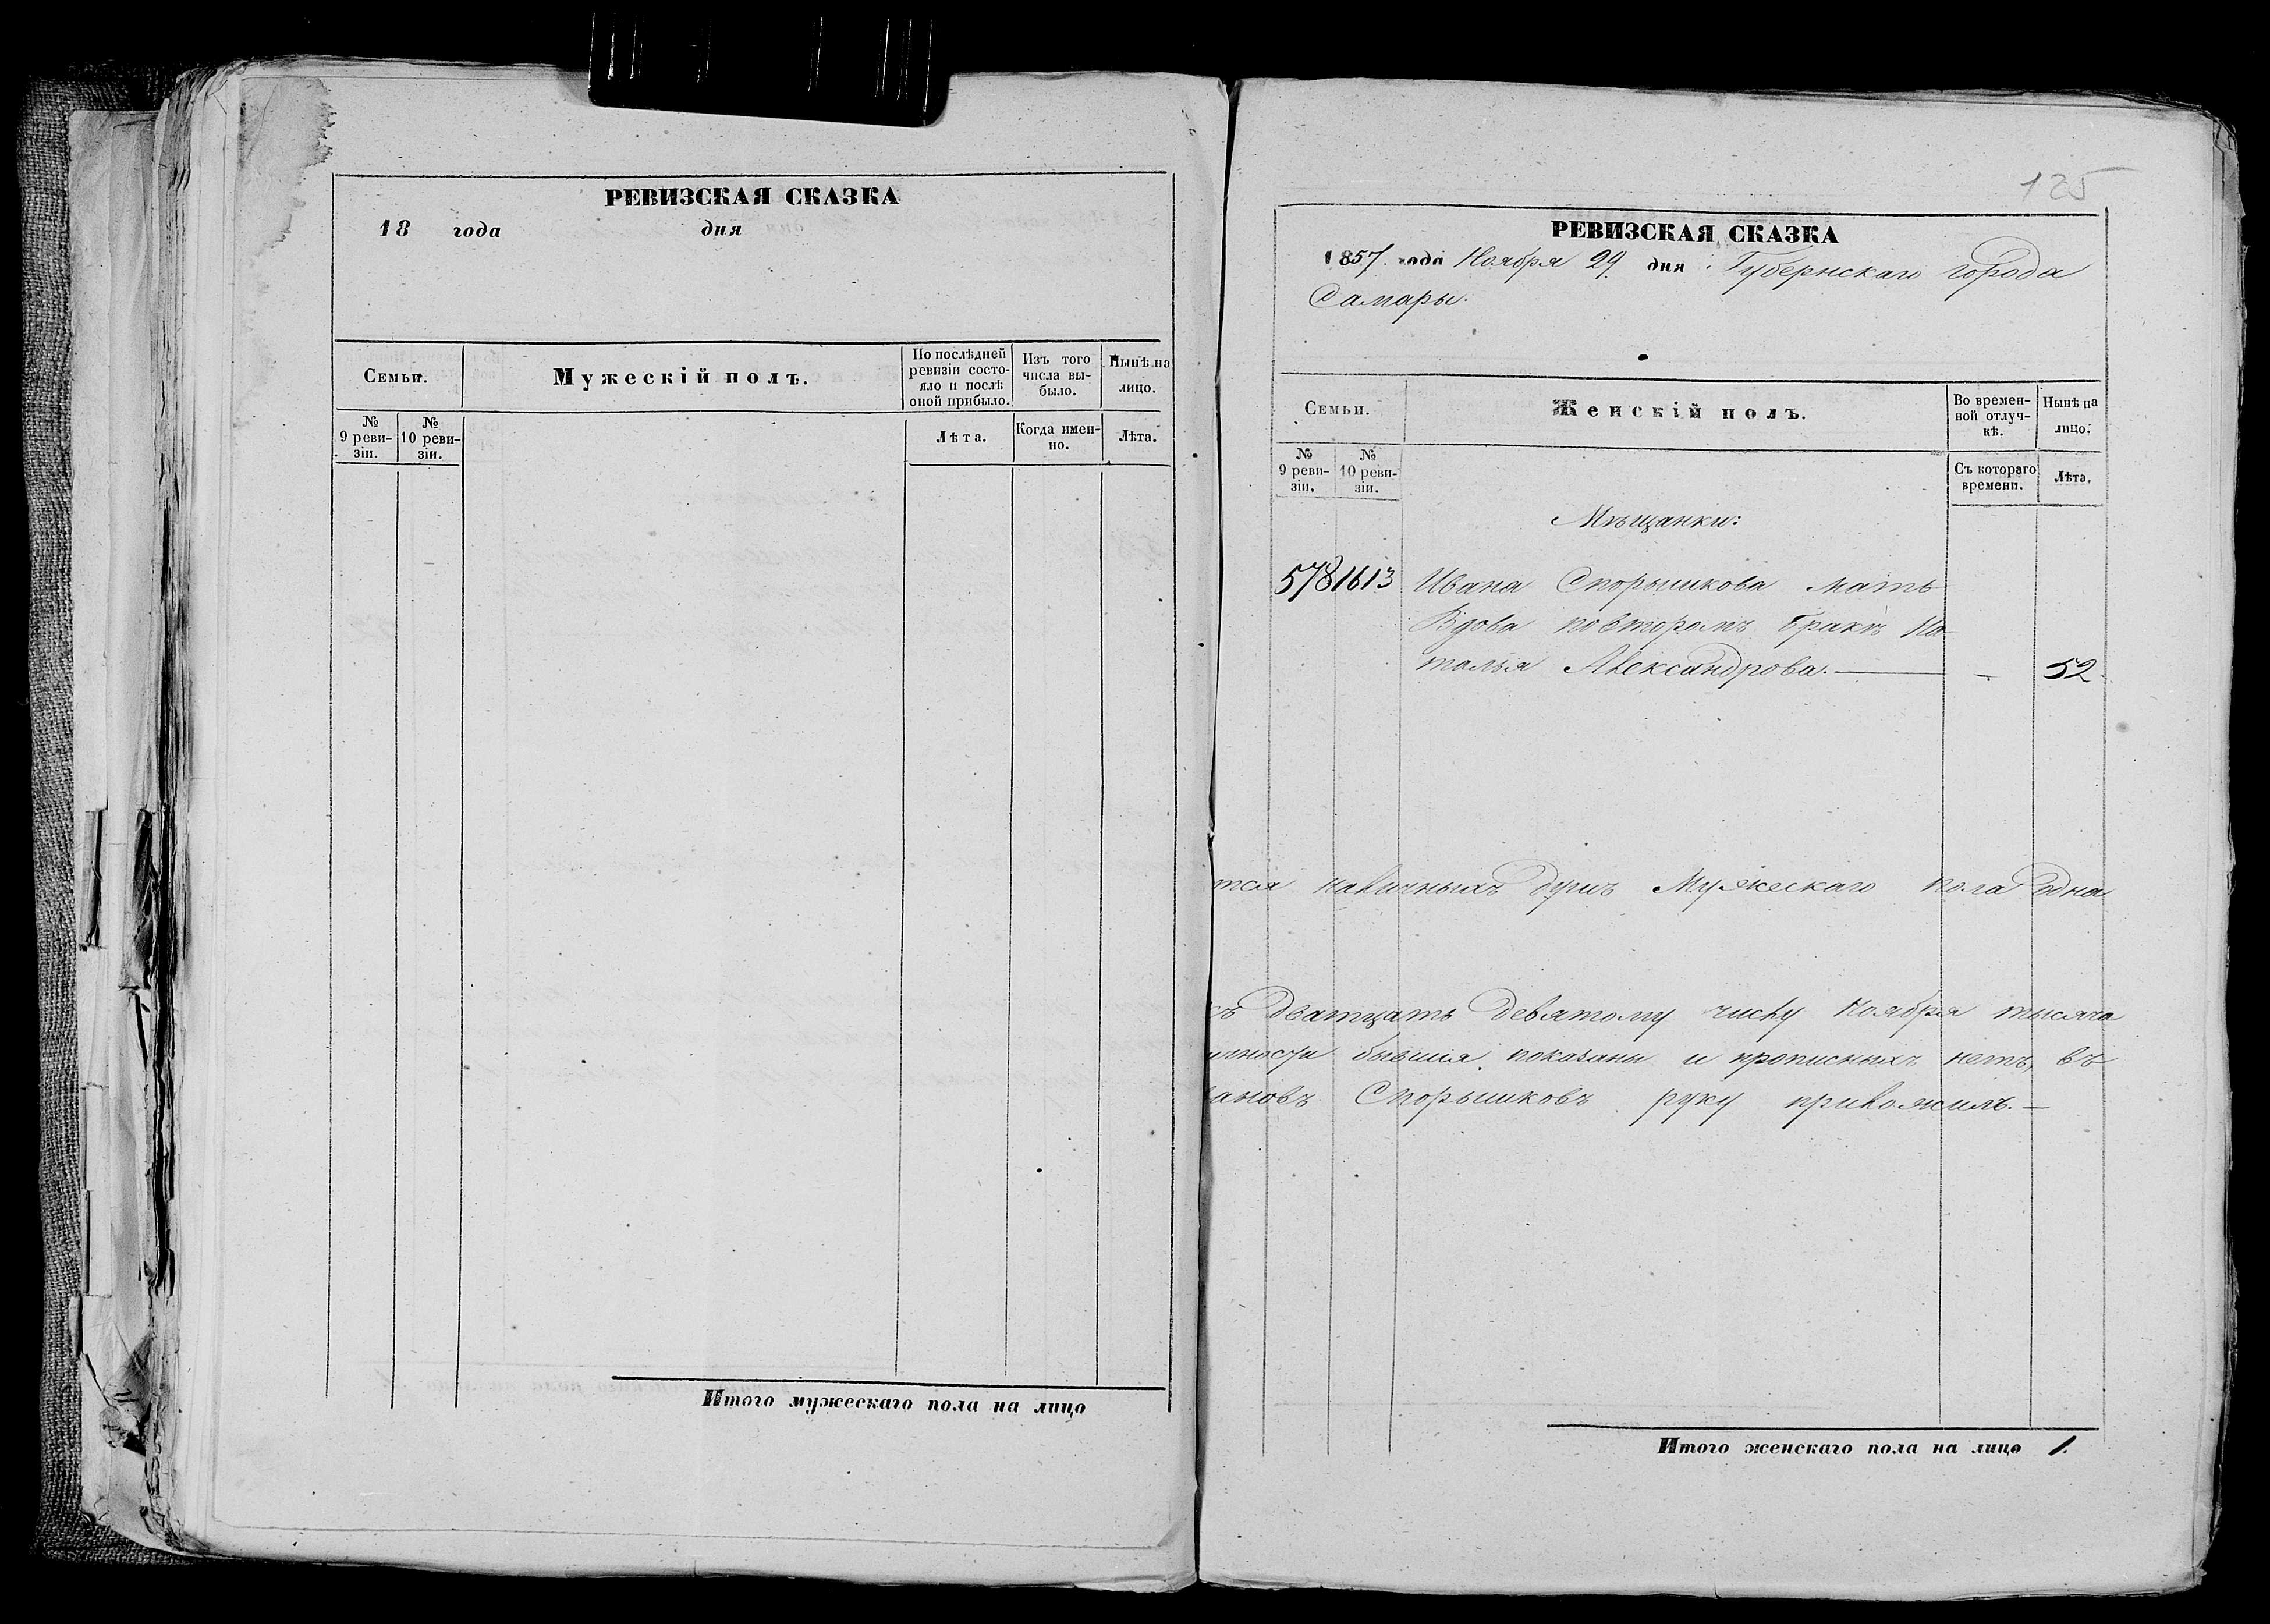 РЕВИЗСКАЯ СКАЗКА
18 года дня
Семьи.
Мужескій полъ.
По послѣдней ревизіи состо-
яло и послѣ оной прибыло.
Изъ того числа вы-
было.
Нынѣ на лицо.
№ 9 реви-
зіи.
№ 10 реви-
зіи.
Лѣта.
Когда имен-
но.
Лѣта.
Итого мужескаго пола на лицо
125
РЕВИЗСКАЯ СКАЗКА
1857 года Ноября 29 дня Губернскаго города
Самары.
Семьи.
Женскій полъ.
Во времен-
ной отлуч-
кѣ.
Нынѣ на лицо.
№ 9 реви-
зіи.
№ 10 реви-
зіи.
Съ котораго времени.
Лѣта.
Мѣщанки:
578 1613 Ивана Спорышкова мать
Вдова повторомъ бракѣ На-
талья Александрова. — - 52
тся наличныхъ душъ Мужескаго пола одна
съ Дватцать девятому числу Ноября тысяча
бывшия показаны и прописныхъ нетъ, въ
ановъ Спорышковъ руку приложилъ. —
Итого женскаго пола на лицо 1.